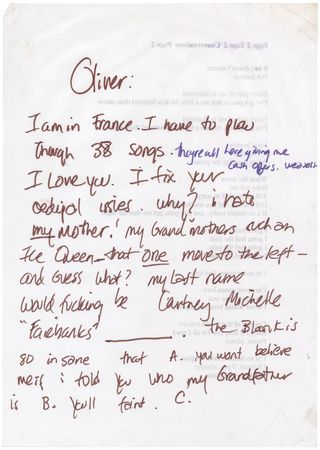 Oliver:
I am in France. I have to plow
through 38 songs. they're all here giving me
cash offers.
I love you. I fix your
oedipal issies. why? i hate
my mother! my Grandmothers such an
Ice Queen - that one move to the left -
and guess what? my last name
would fucking be Courtney Michelle
"Fairbanks" . the Blank is
so insane that A. you wont believe
me if i told you who my Grandfather
is B. youll faint. C.